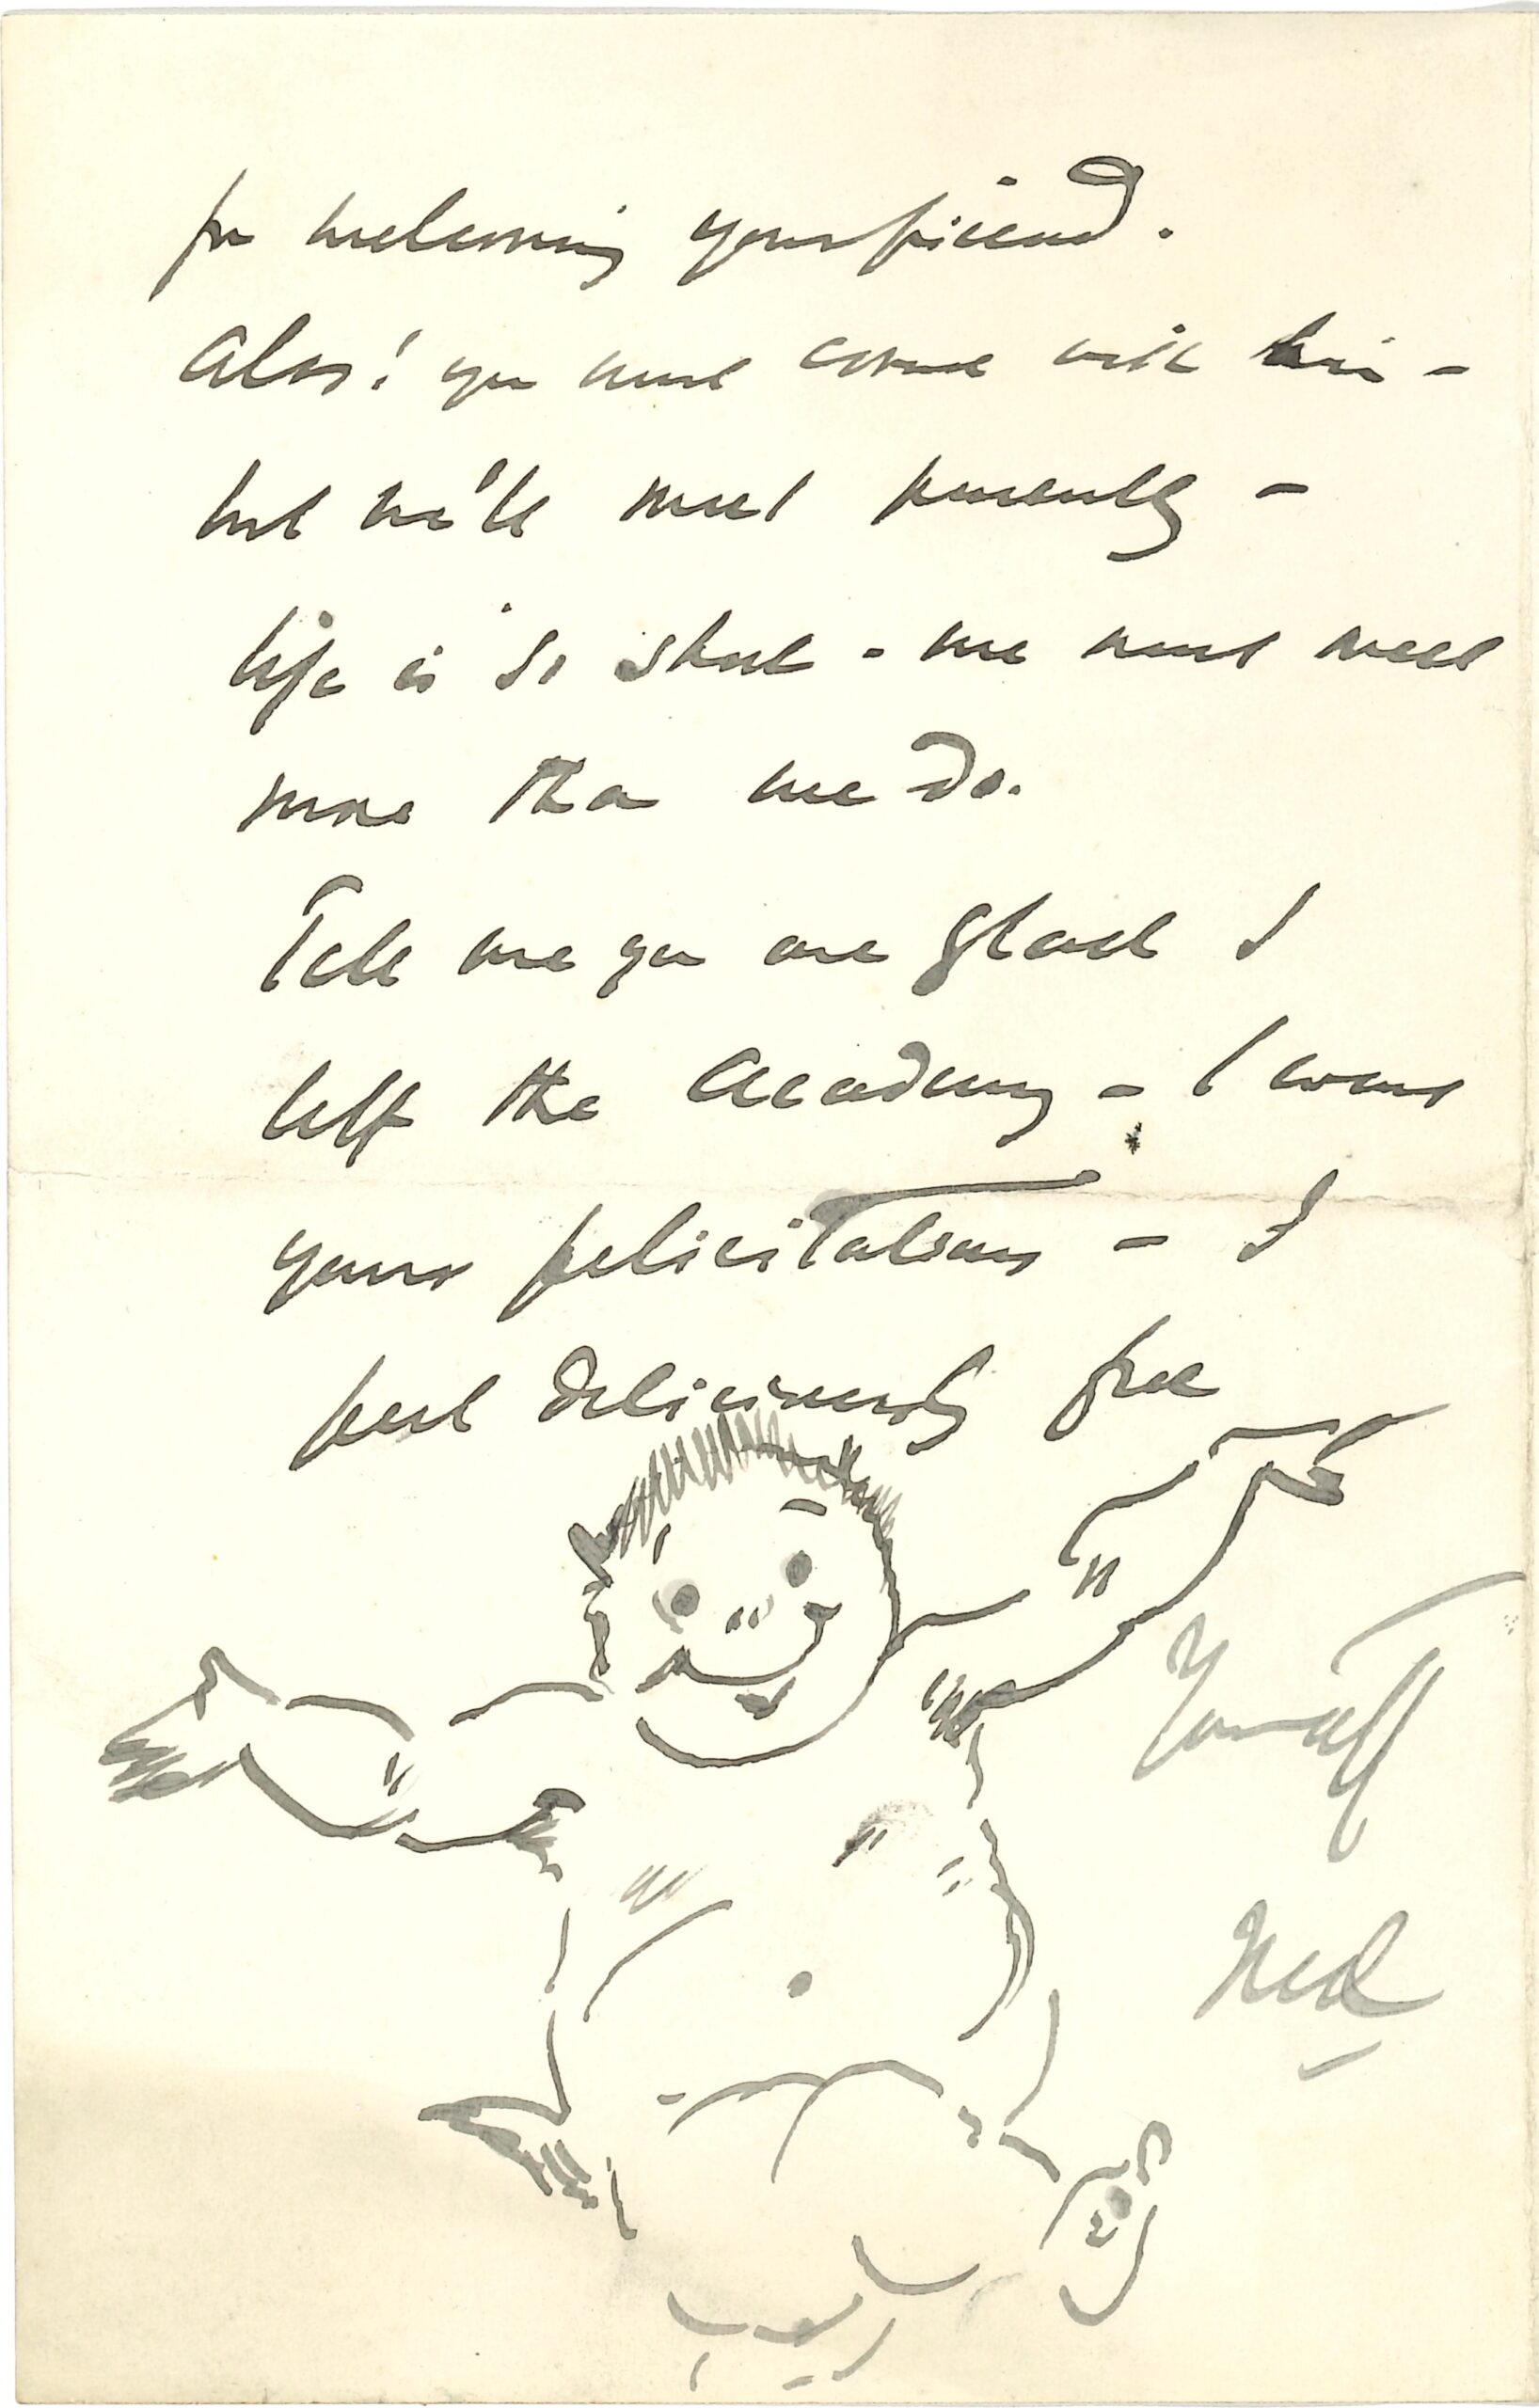 for welcoming your friend.
Alas! you wont come with him -
but we'll meet presently -
life is so short - we must meet
more than we do.
Tell me you are glad I
left the Academy - I want
your felicitations - I
feel deliciously free
Your aff
Ned